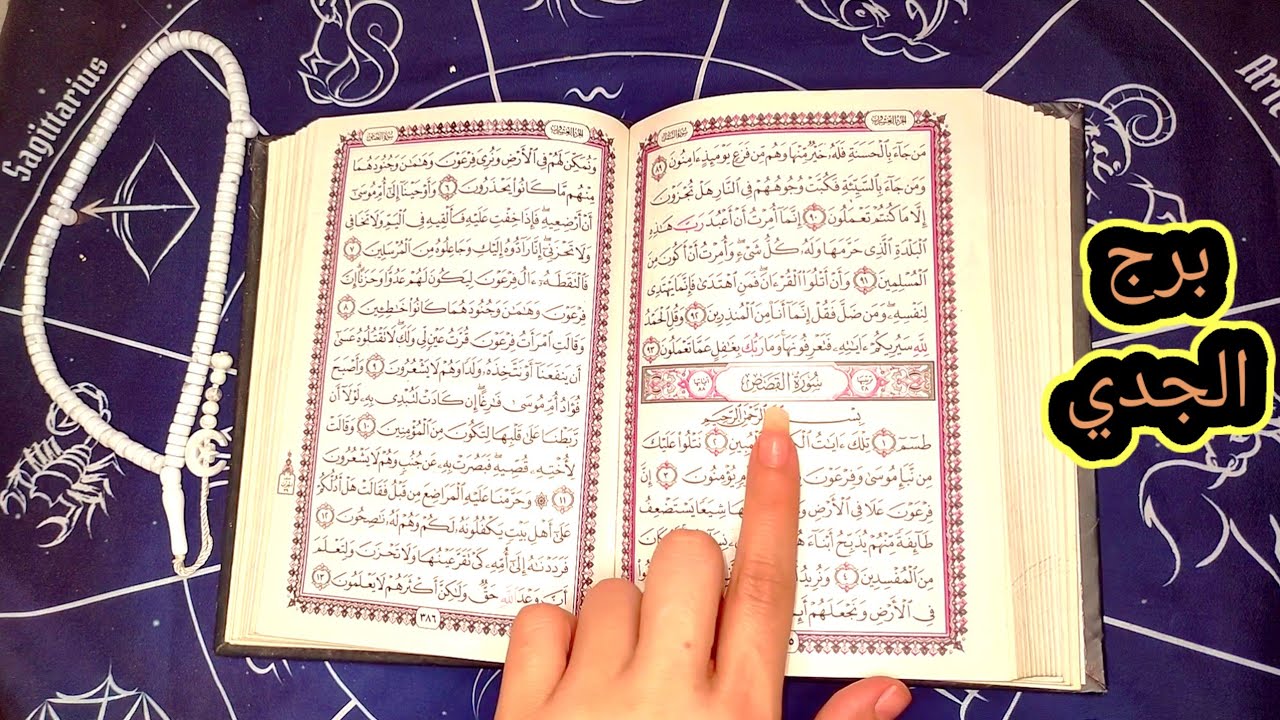 Sagittarius
برج
الجدي
الجزء العشرون
سورة النمل
مَن جَآءَ بِٱلْحَسَنَةِ فَلَهُۥ خَيْرٌ مِّنْهَا وَهُم مِّن فَزَعٍ يَوْمَئِذٍ ءَامِنُونَ ٨٩
وَمَن جَآءَ بِٱلسَّيِّئَةِ فَكُبَّتْ وُجُوهُهُمْ فِى ٱلنَّارِ هَلْ تُجْزَوْنَ
إِلَّا مَا كُنتُمْ تَعْمَلُونَ ٩٠ إِنَّمَآ أُمِرْتُ أَنْ أَعْبُدَ رَبَّ هَٰذِهِ
ٱلْبَلْدَةِ ٱلَّذِى حَرَّمَهَا وَلَهُۥ كُلُّ شَىْءٍ وَأُمِرْتُ أَنْ أَكُونَ مِنَ
ٱلْمُسْلِمِينَ ٩١ وَأَنْ أَتْلُوَا۟ ٱلْقُرْءَانَ فَمَنِ ٱهْتَدَىٰ فَإِنَّمَا يَهْتَدِى
لِنَفْسِهِۦ وَمَن ضَلَّ فَقُلْ إِنَّمَآ أَنَا۠ مِنَ ٱلْمُنذِرِينَ ٩٢ وَقُلِ ٱلْحَمْدُ
لِلَّهِ سَيُرِيكُمْ ءَايَٰتِهِۦ فَتَعْرِفُونَهَا وَمَا رَبُّكَ بِغَٰفِلٍ عَمَّا تَعْمَلُونَ ٩٣
سُورَةُ القَصَصِ
بِسْمِ ٱلرَّحْمَٰنِ ٱلرَّحِيمِ
طسٓمٓ ١ تِلْكَ ءَايَٰتُ ٢ نَتْلُوا۟ عَلَيْكَ
مِن نَّبَإِ مُوسَىٰ وَفِرْعَوْنَ يُؤْمِنُونَ ٣ إِنَّ
فِرْعَوْنَ عَلَا فِى ٱلْأَرْضِ شِيَعًا يَسْتَضْعِفُ
طَآئِفَةً مِّنْهُمْ يُذَبِّحُ أَبْنَآءَ كَانَ
مِنَ ٱلْمُفْسِدِينَ ٤ وَنُرِيدُ
فِى ٱلْأَرْضِ وَنَجْعَلَهُمْ
الجزء العشرون
سورة القصص
وَنُمَكِّنَ لَهُمْ فِى ٱلْأَرْضِ وَنُرِىَ فِرْعَوْنَ وَهَٰمَٰنَ وَجُنُودَهُمَا
مِنْهُم مَّا كَانُوا۟ يَحْذَرُونَ ٦ وَأَوْحَيْنَآ إِلَىٰٓ أُمِّ مُوسَىٰٓ
أَنْ أَرْضِعِيهِ فَإِذَا خِفْتِ عَلَيْهِ فَأَلْقِيهِ فِى ٱلْيَمِّ وَلَا تَخَافِى
وَلَا تَحْزَنِىٓ إِنَّا رَآدُّوهُ إِلَيْكِ وَجَاعِلُوهُ مِنَ ٱلْمُرْسَلِينَ ٧
فَٱلْتَقَطَهُۥٓ ءَالُ فِرْعَوْنَ لِيَكُونَ لَهُمْ عَدُوًّا وَحَزَنًا إِنَّ
فِرْعَوْنَ وَهَٰمَٰنَ وَجُنُودَهُمَا كَانُوا۟ خَٰطِـِٔينَ ٨
وَقَالَتِ ٱمْرَأَتُ فِرْعَوْنَ قُرَّتُ عَيْنٍ لِّى وَلَكَ لَا تَقْتُلُوهُ عَسَىٰٓ
أَن يَنفَعَنَآ أَوْ نَتَّخِذَهُۥ وَلَدًا وَهُمْ لَا يَشْعُرُونَ ٩ وَأَصْبَحَ
فُؤَادُ أُمِّ مُوسَىٰ فَٰرِغًا إِن كَادَتْ لَتُبْدِى بِهِۦ لَوْلَآ أَن
رَّبَطْنَا عَلَىٰ قَلْبِهَا لِتَكُونَ مِنَ ٱلْمُؤْمِنِينَ ١٠ وَقَالَتْ
لِأُخْتِهِۦ قُصِّيهِ فَبَصُرَتْ بِهِۦ عَن جُنُبٍ وَهُمْ لَا يَشْعُرُونَ
١١ ۞ وَحَرَّمْنَا عَلَيْهِ ٱلْمَرَاضِعَ مِن قَبْلُ فَقَالَتْ هَلْ أَدُلُّكُمْ
عَلَىٰٓ أَهْلِ بَيْتٍ يَكْفُلُونَهُۥ لَكُمْ وَهُمْ لَهُۥ نَٰصِحُونَ ١٢
فَرَدَدْنَٰهُ إِلَىٰٓ أُمِّهِۦ كَىْ تَقَرَّ عَيْنُهَا وَلَا تَحْزَنَ وَلِتَعْلَمَ
أَنَّ وَعْدَ ٱللَّهِ حَقٌّ وَلَٰكِنَّ أَكْثَرَهُمْ لَا يَعْلَمُونَ ١٣
٣٨٦